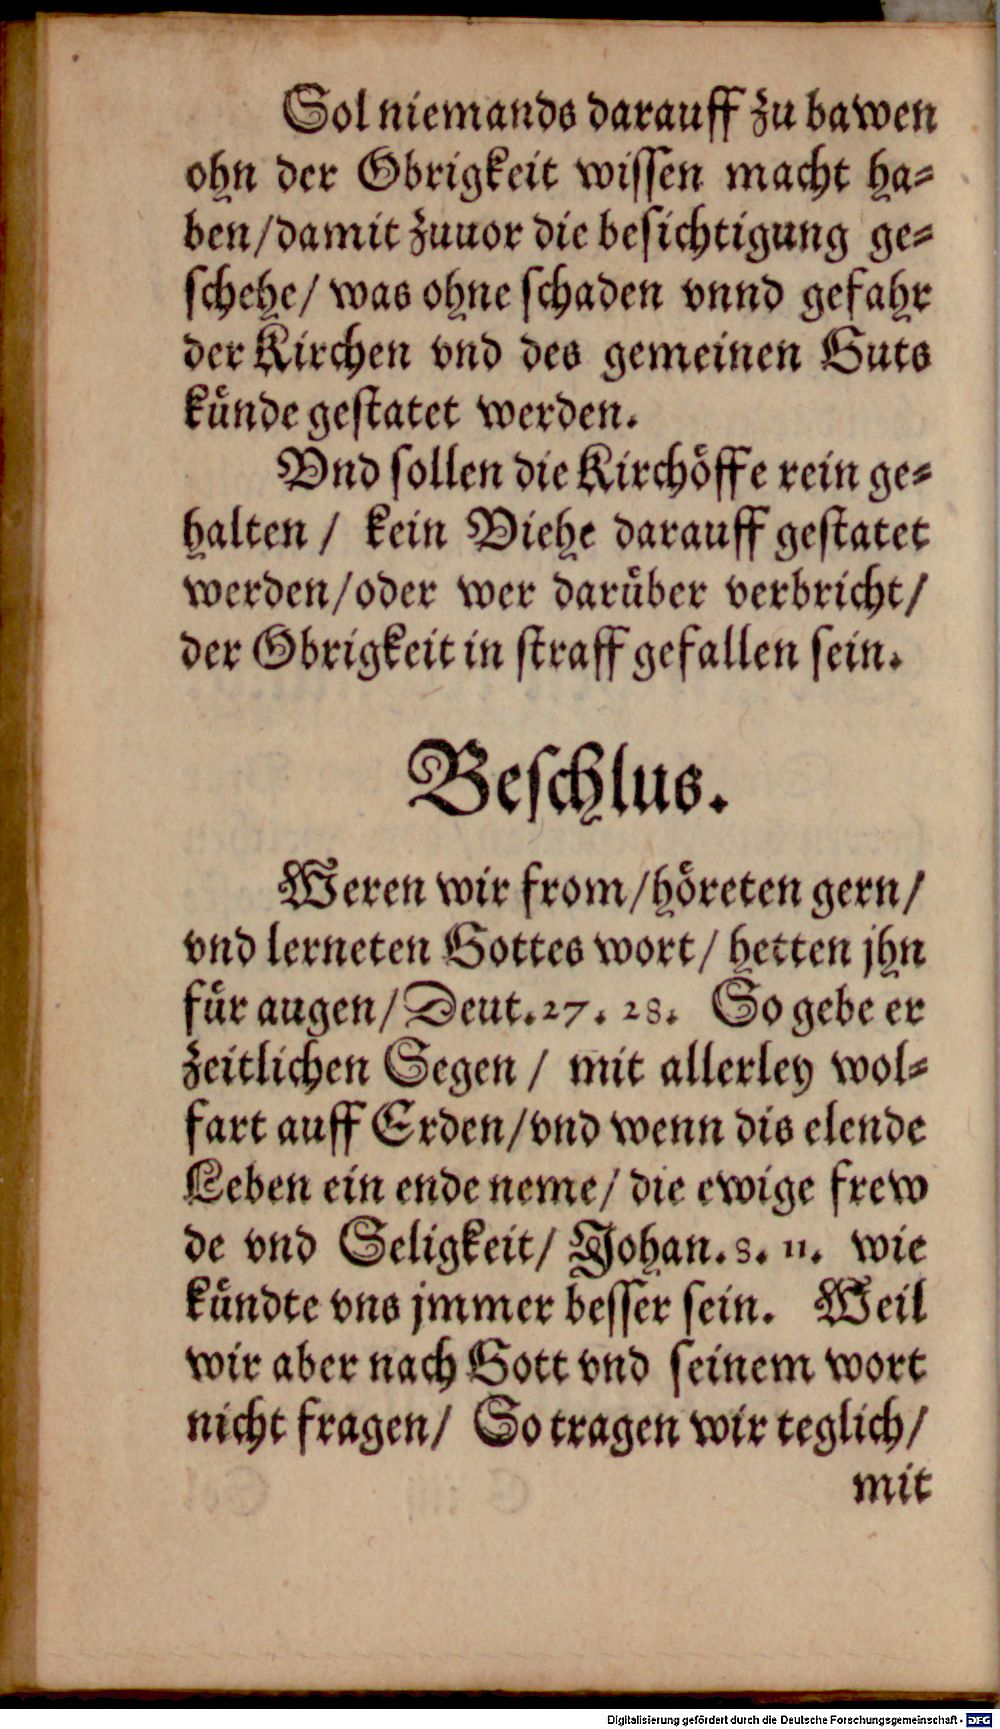 Sol niemands darauff zu bawen
ohn der Obrigkeit wissen macht ha-
ben/damit zuuor die besichtigung ge-
schehe/ was ohne schaden vnnd gefahr
der Kirchen vnd des gemeinen Guts
künde gestatet werden.
Vnd sollen die Kirchöffe rein ge-
halten / kein Viehe darauff gestatet
werden/oder wer darüber verbricht/
der Obrigkeit in straff gefallen sein.
Beschlus.
Weren wir from/höreten gern/
vnd lerneten Gottes wort/ hetten jhn
für augen/Deut.27. 28. So gebe er
zeitlichen Segen / mit allerley wol-
fart auff Erden/vnd wenn dis elende
Leben ein ende neme/ die ewige frew
de vnd Seligkeit/ Johan. 8. 11. wie
kündte vns jmmer besser sein. Weil
wir aber nach Gott vnd seinem wort
nicht fragen/ So tragen wir teglich/
mit
Digitalisierung gefördert durch die Deutsche Forschungsgemeinschaft - DFG